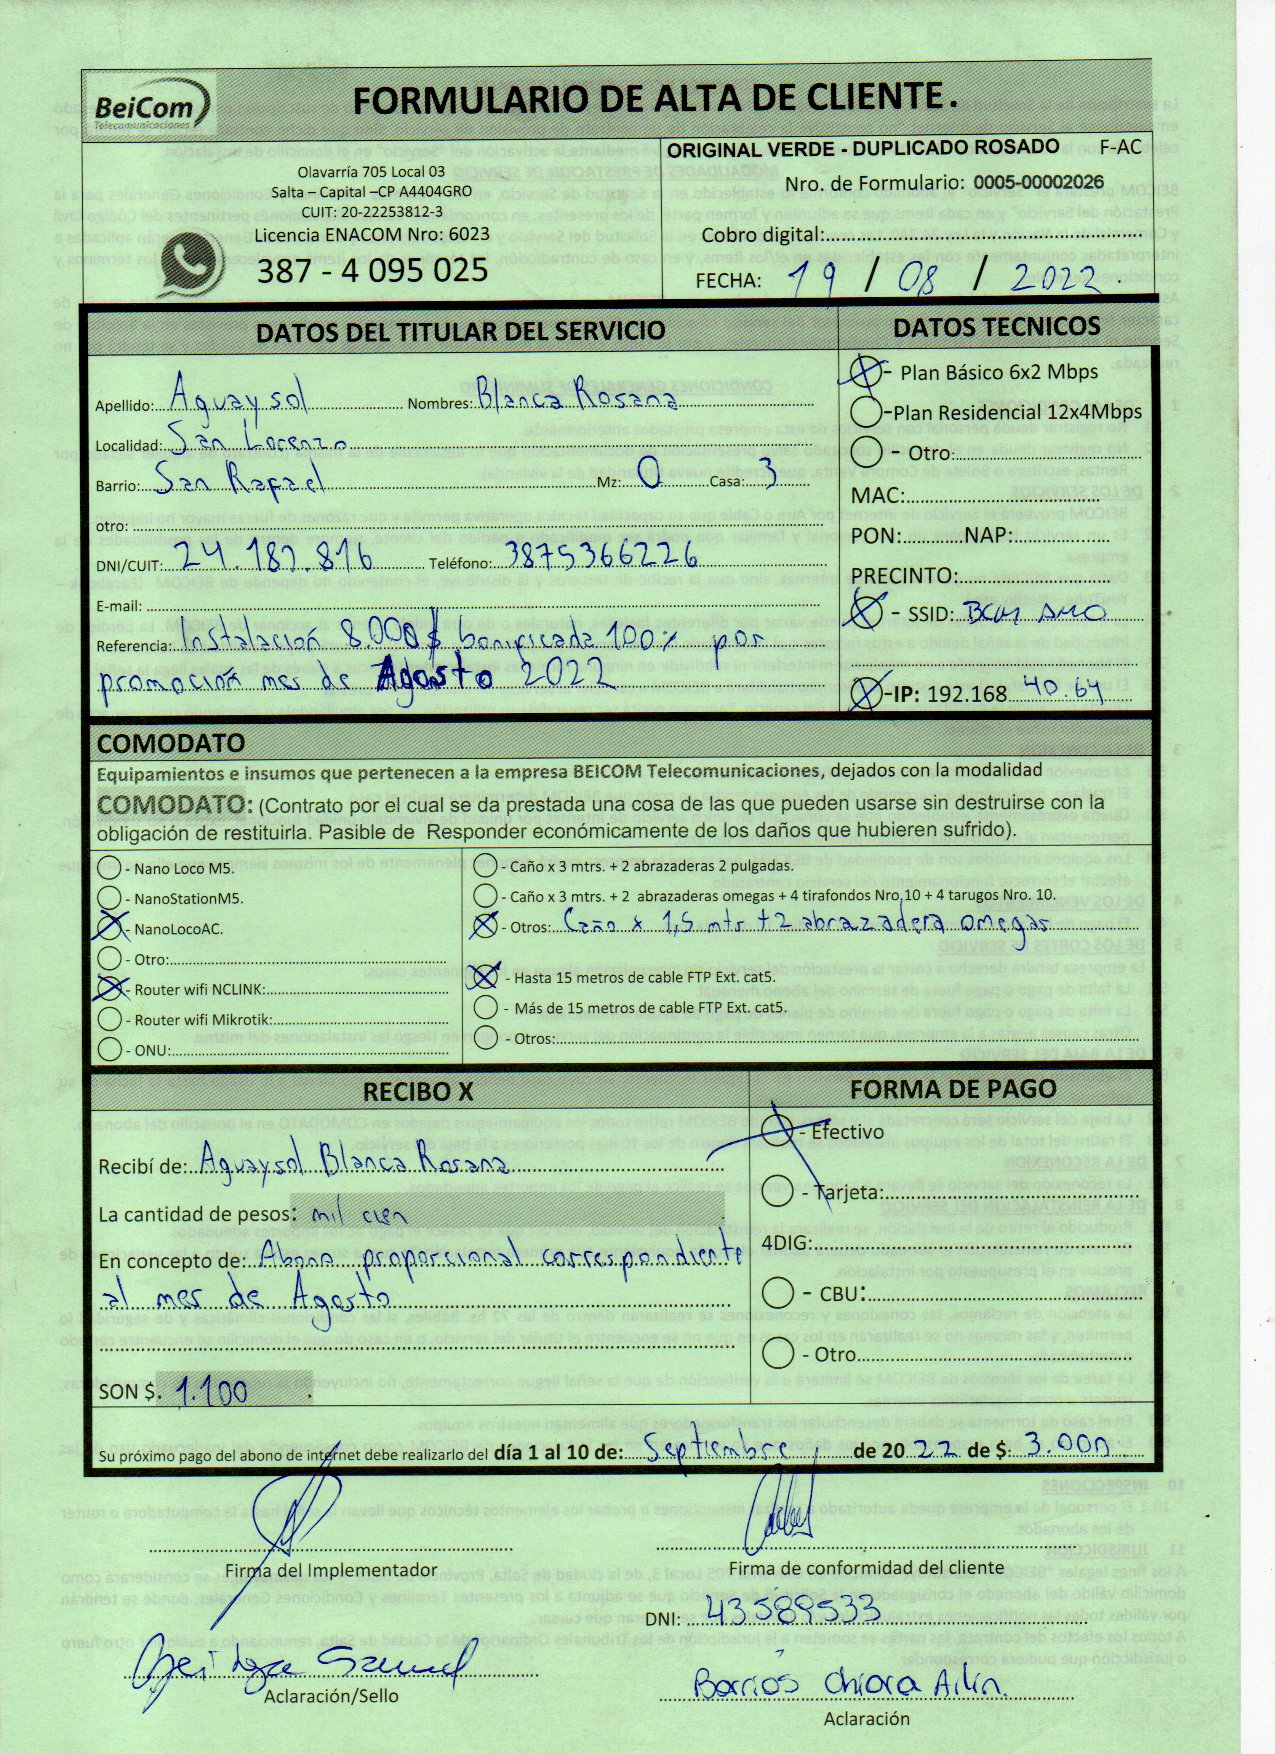 BeiCom
Telecomunicaciones
FORMULARIO DE ALTA DE CLIENTE.
Olavarría 705 Local 03
Salta – Capital –CP A4404GRO
CUIT: 20-22253812-3
Licencia ENACOM Nro: 6023
387 - 4 095 025
ORIGINAL VERDE - DUPLICADO ROSADO F-AC
Nro. de Formulario: 0005-00002026
Cobro digital:
FECHA: 19 / 08 / 2022
DATOS DEL TITULAR DEL SERVICIO
Apellido: Aguaysol Nombres: Blanca Rosana
Localidad: San Lorenzo
Barrio: San Rafael Mz: O Casa: 3
otro:
DNI/CUIT: 24.187.816 Teléfono: 3875366226
E-mail:
Referencia: Instalación 8.000$ bonificada 100% por
promoción mes de Agosto 2022
DATOS TECNICOS
- Plan Básico 6x2 Mbps
-Plan Residencial 12x4Mbps
- Otro:
MAC:
PON: NAP:
PRECINTO:
- SSID: BCM AMO
-IP: 192.168 40.64
COMODATO
Equipamientos e insumos que pertenecen a la empresa BEICOM Telecomunicaciones, dejados con la modalidad
COMODATO: (Contrato por el cual se da prestada una cosa de las que pueden usarse sin destruirse con la
obligación de restituirla. Pasible de Responder económicamente de los daños que hubieren sufrido).
- Nano Loco M5.
- NanoStationM5.
- NanoLocoAC.
- Otro:
- Router wifi NCLINK:
- Router wifi Mikrotik:
- ONU:
- Caño x 3 mtrs. + 2 abrazaderas 2 pulgadas.
- Caño x 3 mtrs. + 2 abrazaderas omegas + 4 tirafondos Nro,10 + 4 tarugos Nro. 10.
- Otros: Caño x 1,5 mtr +2 abrazadera omegas
- Hasta 15 metros de cable FTP Ext. cat5.
- Más de 15 metros de cable FTP Ext. cat5.
- Otros:
RECIBO X
Recibí de: Aguaysol Blanca Rosana
La cantidad de pesos: mil cien
En concepto de: Abono proporcional correspondiente
al mes de Agosto
SON $. 1.100
FORMA DE PAGO
- Efectivo
- Tarjeta:
4DIG:
- CBU:
- Otro
Su próximo pago del abono de internet debe realizarlo del día 1 al 10 de: Septiembre de 2022 de $: 3.000
Firma del Implementador
Firma de conformidad del cliente
DNI: 43589533
Samuel
Aclaración/Sello
Barrios Chiara Ailin.
Aclaración